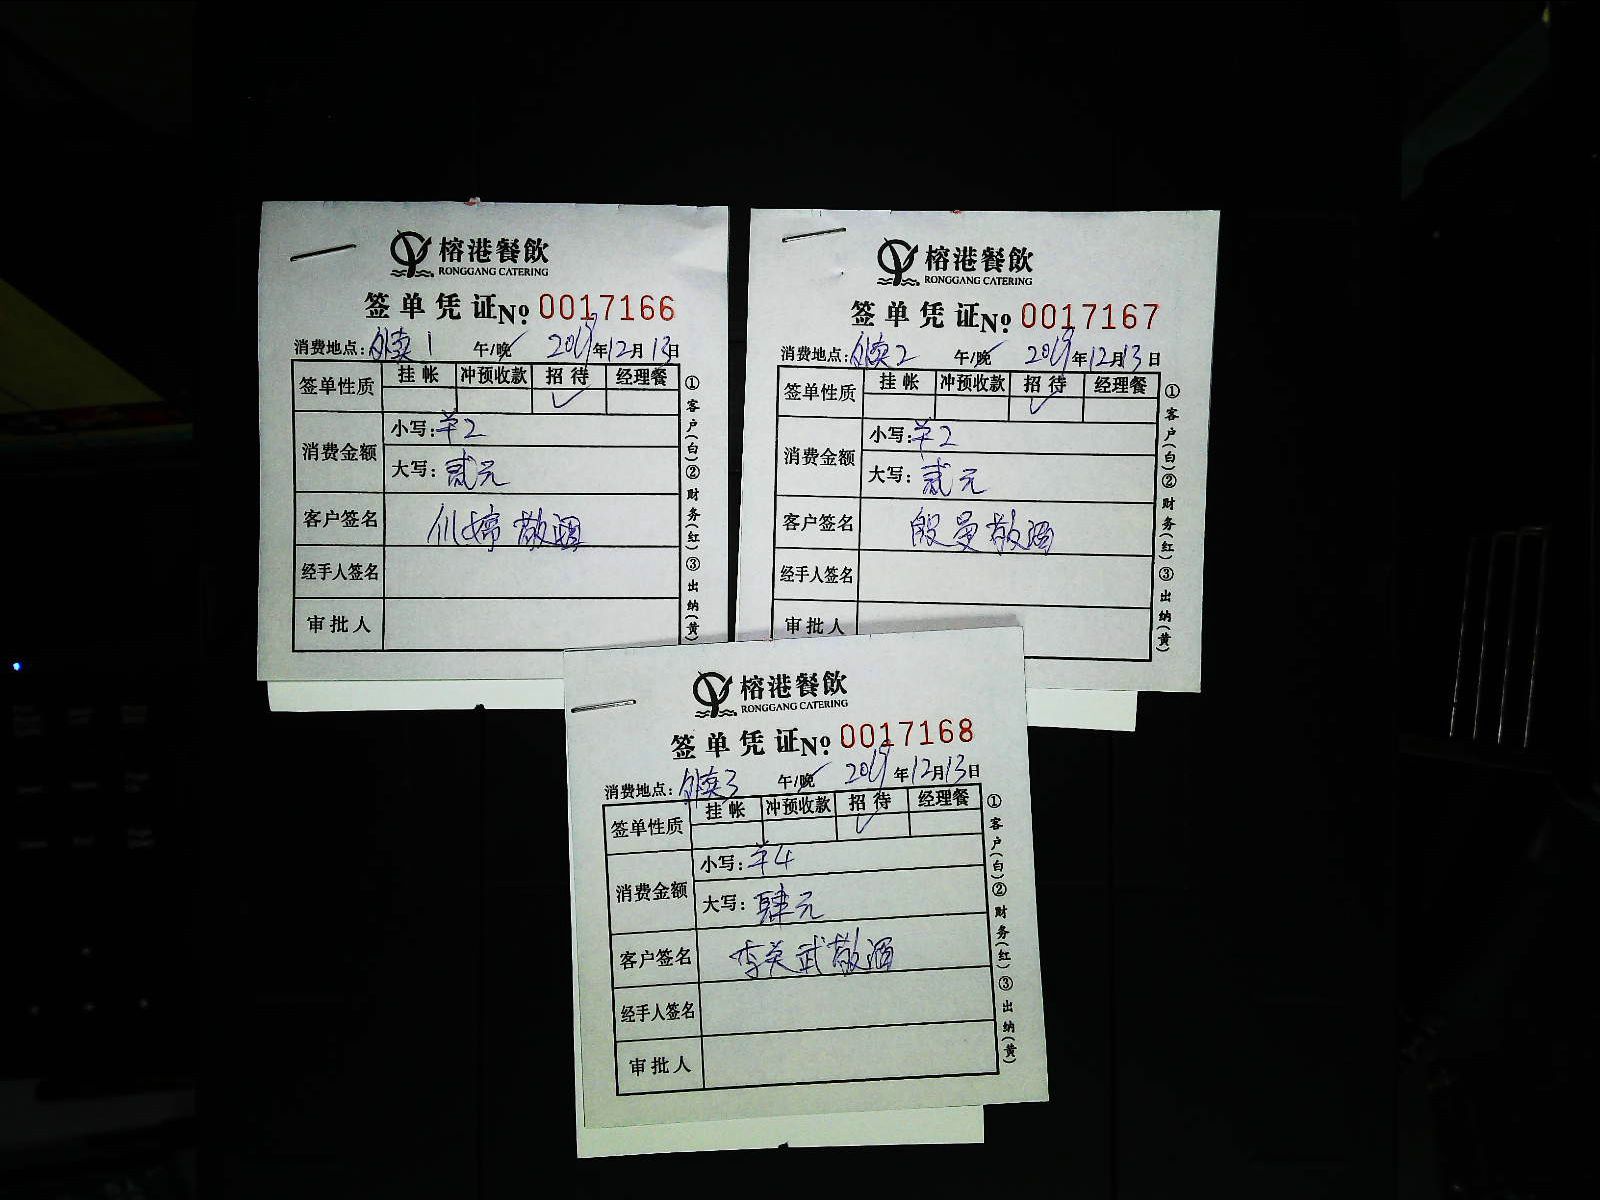 榕港餐飲
RONGGANG CATERING
签单凭证No. 0017166
消费地点: 外卖1 午/晚✓ 2019年12月13日
签单性质 挂帐 冲预收款 招待 经理餐
✓
消费金额 小写: 羊2
大写: 贰元
客户签名 婷敬酒
经手人签名
审批人
①客户(白)②财务(红)③出纳(黄)
榕港餐飲
RONGGANG CATERING
签单凭证No. 0017167
消费地点: 外卖2 午/晚✓ 2019年12月13日
签单性质 挂帐 冲预收款 招待 经理餐
✓
消费金额 小写: 羊2
大写: 贰元
客户签名 殷曼敬酒
经手人签名
审批人
①客户(白)②财务(红)③出纳(黄)
榕港餐飲
RONGGANG CATERING
签单凭证No. 0017168
消费地点: 外卖3 午/晚✓ 2019年12月13日
签单性质 挂帐 冲预收款 招待 经理餐
✓
消费金额 小写: 羊4
大写: 肆元
客户签名 李英武敬酒
经手人签名
审批人
①客户(白)②财务(红)③出纳(黄)